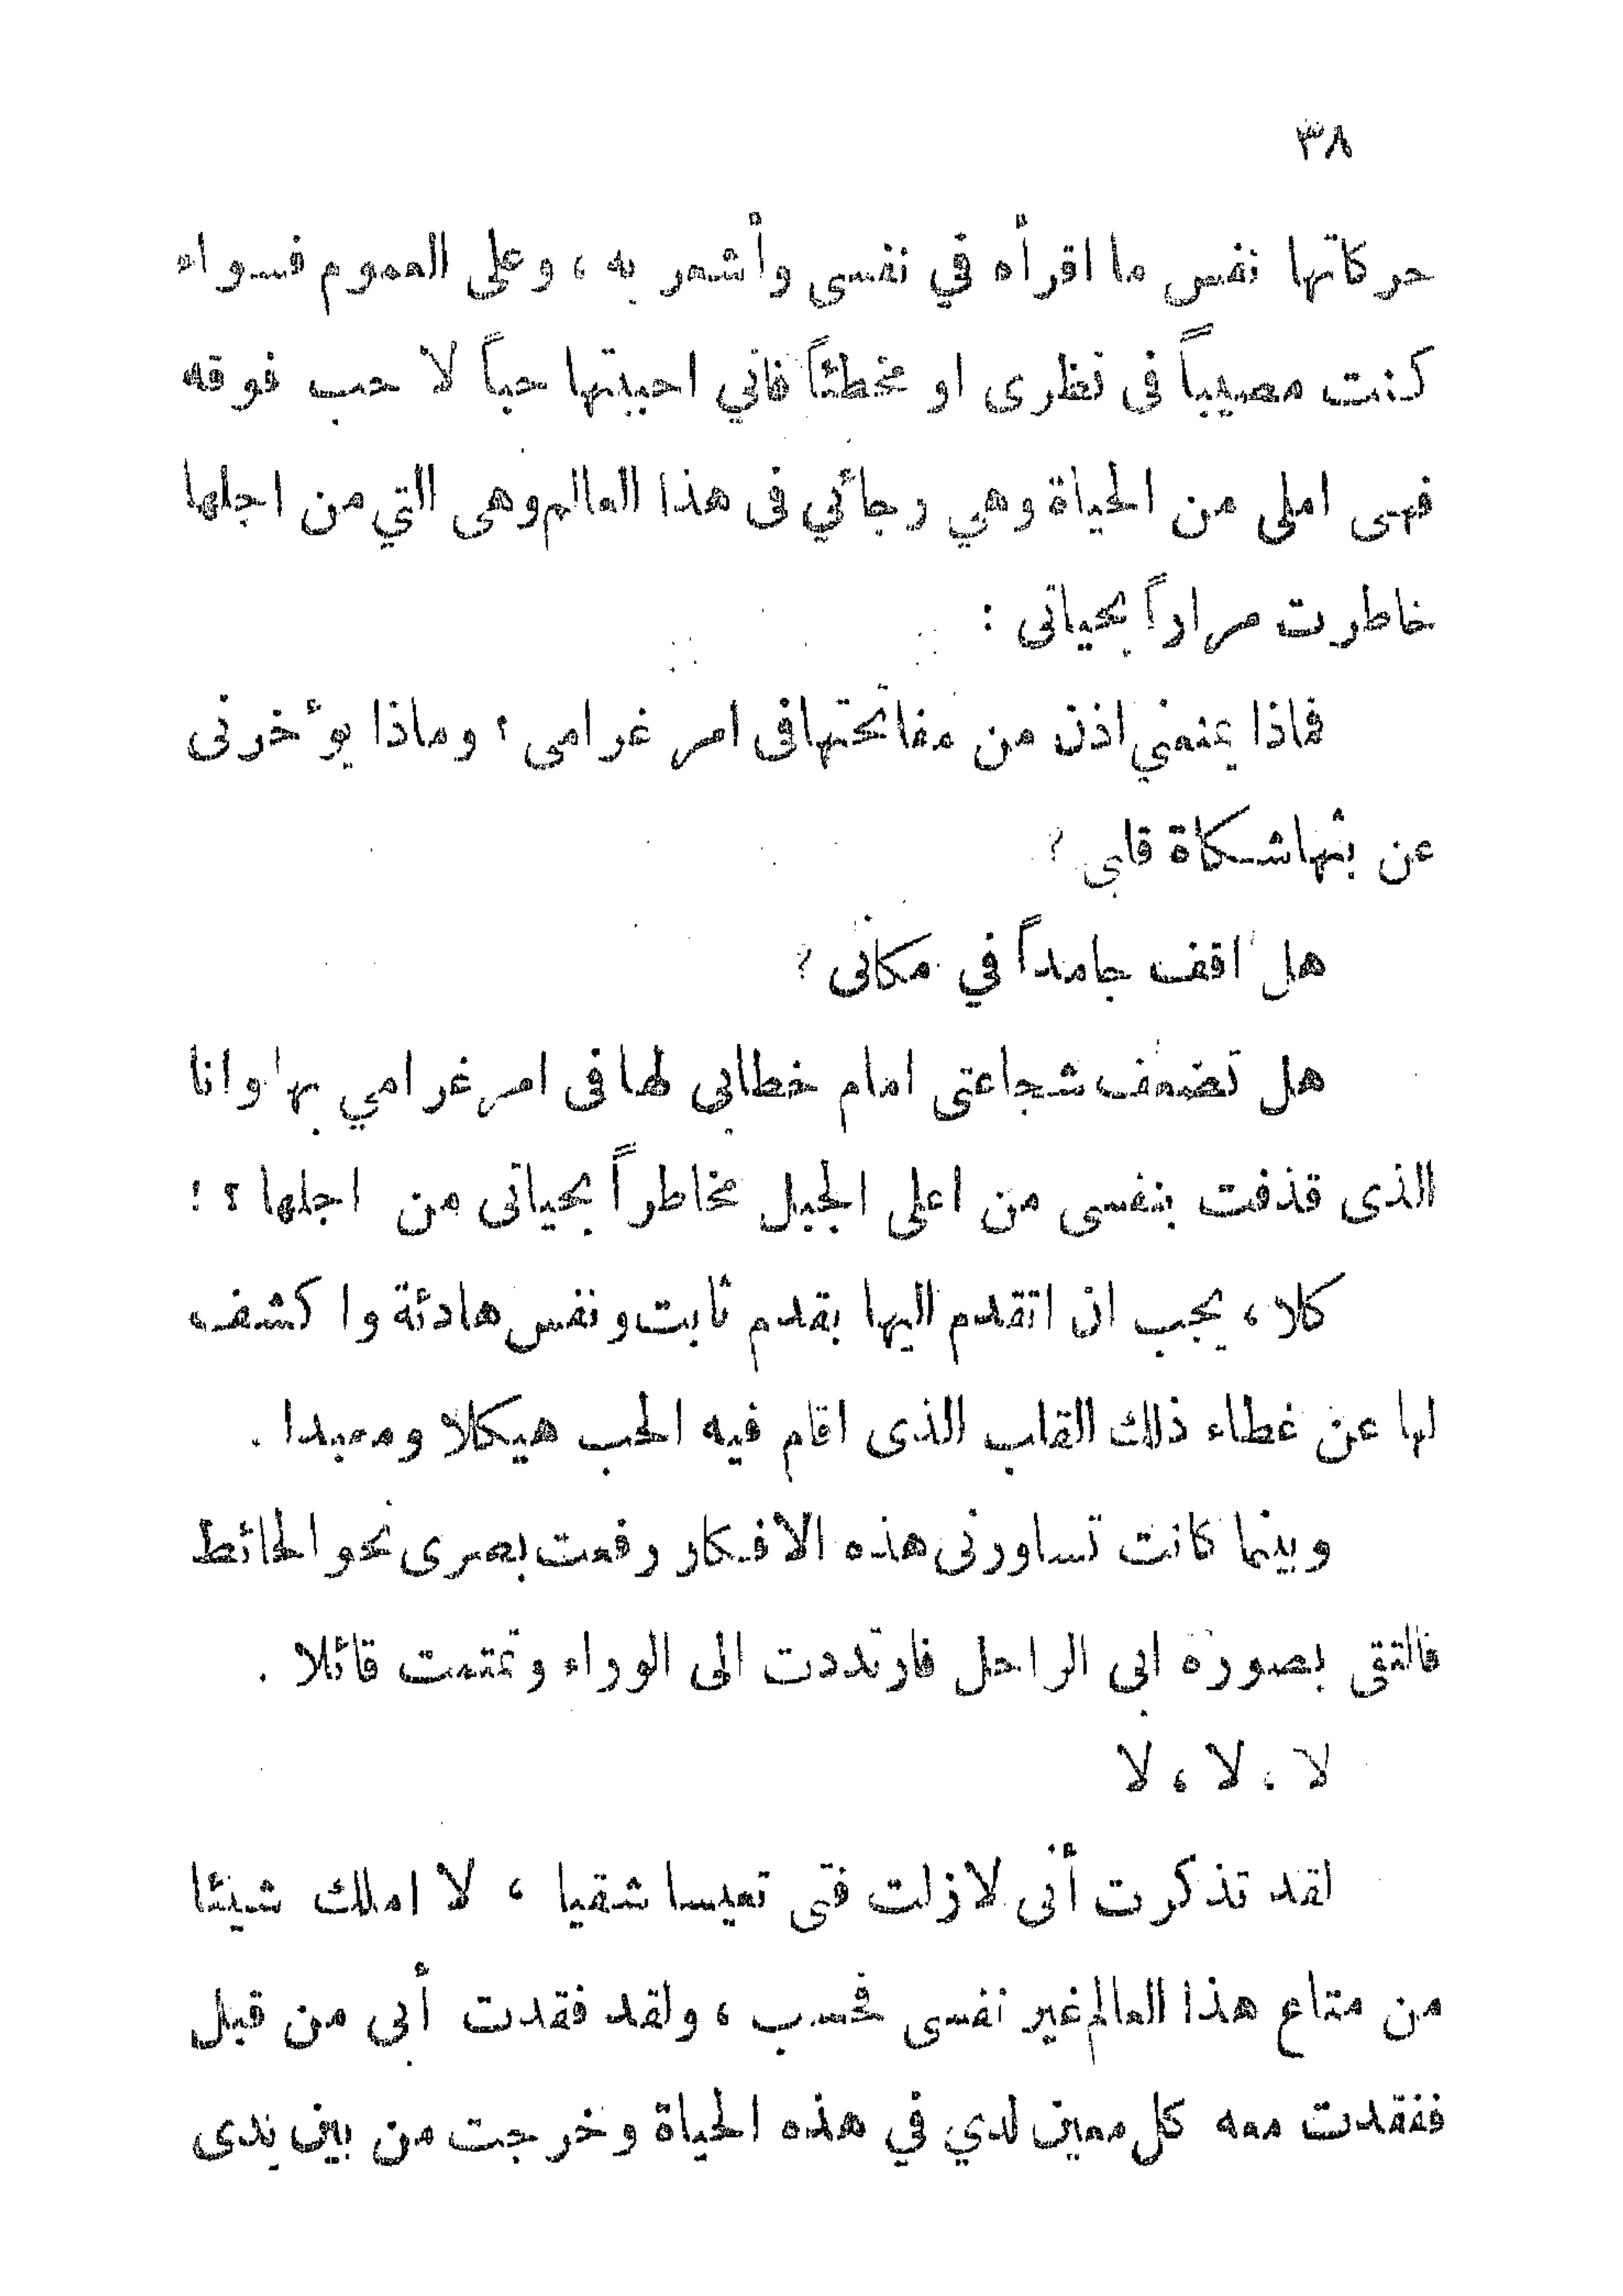 ٣٨
حركاتها نفس ما اقرأه في نفسى وأشعر به ، وعلى العموم فسواء
كنت مصيباً فى نظرى او مخطئاً فاني احببتها حباً لا حب فوقه
فهى املى من الحياة وهي رجائي فى هذا العالم وهى التي من اجلها
خاطرت مراراً بحياتى :
فماذا يمنعني اذن من مفاتحتها فى امر غرامى ؟ وماذا يؤخرنى
عن بثها شكاة قلبى ؟
هل اقف جامداً في مكانى ؟
هل تضعف شجاعتى امام خطابى لها فى امر غرامي بها وانا
الذى قذفت بنفسى من اعلى الجبل مخاطراً بحياتى من اجلها ؟ !
كلا ، يجب ان اتقدم اليها بقدم ثابت ونفس هادئة واكشف
لها عن غطاء ذلك القلب الذى اقام فيه الحب هيكلا ومعبدا .
وبينما كانت تساورنى هذه الافكار رفعت بصرى نحو الحائط
فالتقى بصورة ابى الراحل فارتددت الى الوراء وتمتمت قائلا .
لا ، لا ، لا
لقد تذكرت أنى لازلت فتى تعيسا شقيا ، لا املك شيئا
من متاع هذا العالم غير نفسى فحسب ، ولقد فقدت أبى من قبل
ففقدت معه كل معين لدي في هذه الحياة وخرجت من بين يدى